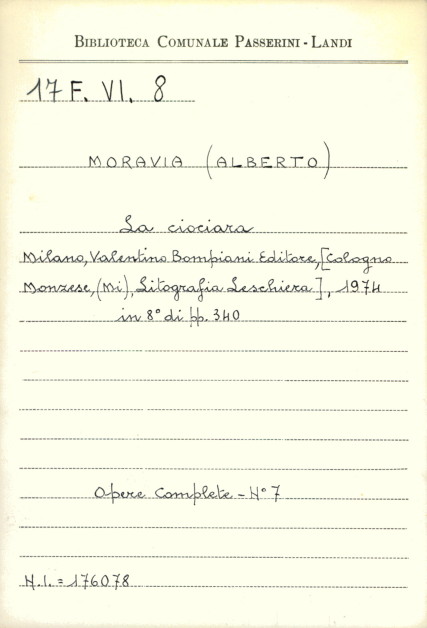 BIBLIOTECA COMUNALE PASSERINI - LANDI
17 F. VI. 8
MORAVIA (ALBERTO)
La ciociara
Milano, Valentino Bompiani Editore, [Cologno
Monzese, (Mi), Litografia Leschiera], 1974
in 8° di pp. 340
Opere Complete - N° 7
N.I. = 176078